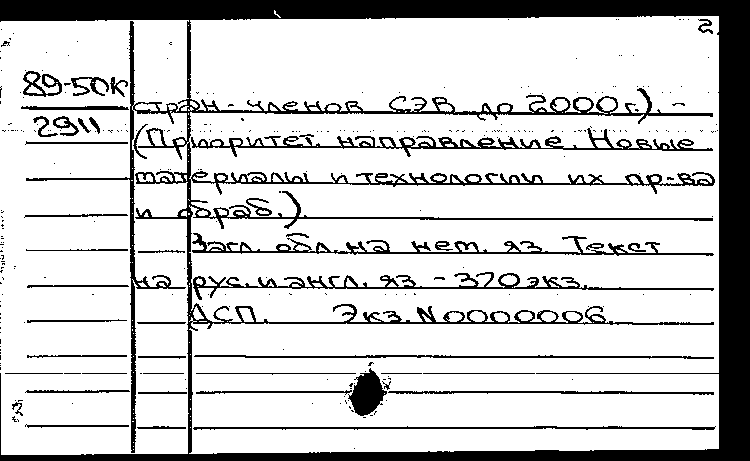 2.
89-50К
2911
стран-членов СЭВ до 2000 г.). -
(Приоритет. направление. Новые
материалы и технологии их пр-ва
и обраб.).
Загл. обл. на нем. яз. Текст
на рус. и англ. яз. - 370 экз.
ДСП. Экз. N0000006.